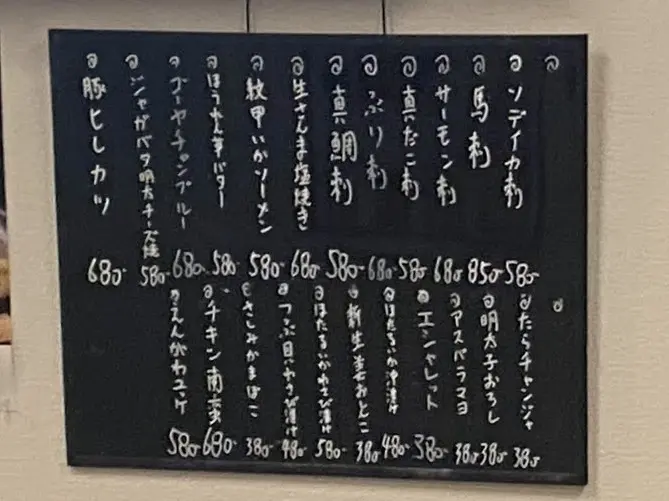 ソデイカ刺 580-
馬刺 850-
サーモン刺 680-
真だこ刺 580-
ぶり刺 680-
真鯛刺 580-
生さんま塩焼き 680-
紋甲いかソーメン 580-
ほうれん草バター 580-
ゴーヤチャンプルー 680-
ジャガバタ明太チーズ焼 580-
豚ヒレカツ 680-
たらチャンジャ 380-
明太子おろし 380-
アスパラマヨ 380-
エシャレット 380-
ほたるいか沖漬け 480-
新生姜おとこ 380-
ほたるいかわさび漬け 580-
つぶ貝わさび漬け 480-
さしみかまぼこ 380-
チキン南蛮 680-
えんがわユッケ 580-